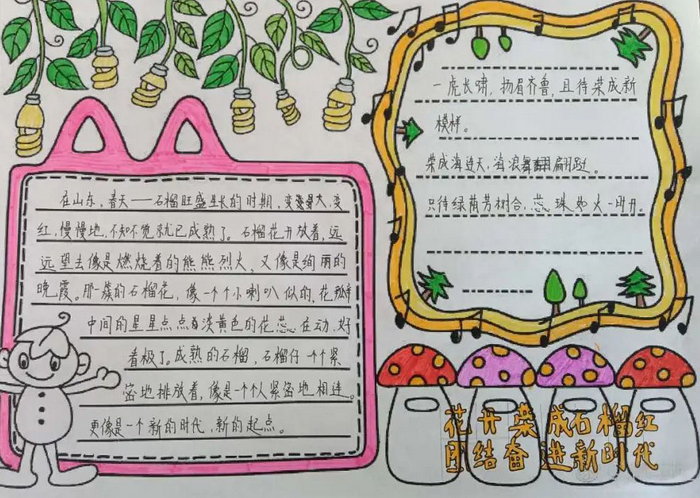 在山东,春天——石榴旺盛生长的时期,变大,变
红,慢慢地,不知不觉就已成熟了。石榴花开放着,远
远望去像是燃烧着的熊熊烈火,又像是绚丽的
晚霞。那一簇的石榴花,像一个个小喇叭似的,花瓣
中间的星星点点淡黄色的花蕊在动,好
看极了。成熟的石榴,石榴仔一个个紧
密地排放着,像是一个个人紧密地相连。
更像是一个新的时代,新的起点。
一虎长啸,扬眉齐鲁,且待荣成新
模样。
荣成海连天,海浪舞翩跹。
只待绿荫芳树合,蕊珠如火一时开。
花开荣成石榴红
团结奋进新时代